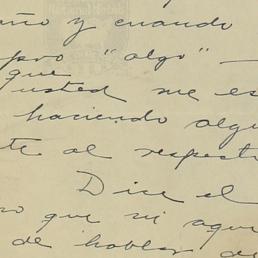 año y cuando
pero "algo" —
que
usted me es
haciendo algu
te al respect
Dice el
que ni aqu
de hablar de